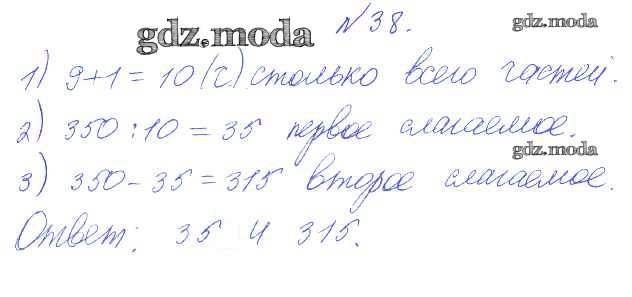 №38.
gdz.moda
gdz.moda
1) 9+1=10 (ч) столько всего частей.
2) 350:10=35 первое слагаемое.
gdz.moda
3) 350-35=315 второе слагаемое.
Ответ: 35 и 315.